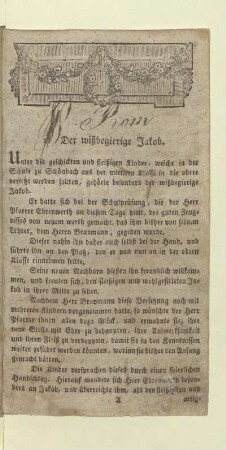 Der wißbegierige Jakob.
Unter die geschickten und fleißigen Kinder, welche in der
Schule zu Schönbach aus der untern Klasse in die obere
versetzt werden sollten, gehörte besonders der wißbegierige
Jakob.
Er hatte sich bei der Schulprüfung, die der Herr
Pfarrer Ehrenwerth an diesem Tage hielt, des guten Zeug-
nisses von neuem werth gemacht, das ihm bisher von seinem
Lehrer, dem Herrn Bravmann, gegeben wurde.
Dieser nahm ihn daher auch selbst bei der Hand, und
führte ihn an den Platz, den er von nun an in der obern
Klasse einnehmen sollte.
Seine neuen Nachbarn hießen ihn freundlich willkom-
men, und freuten sich, den fleißigen und wohlgesitteten Ja-
kob in ihrer Mitte zu sehen.
Nachdem Herr Bravmann diese Versetzung noch mit
mehreren Kindern vorgenommen hatte, so wünschte der Herr
Pfarrer ihnen allen dazu Glück, und ermahnte sie, ihre
neue Stelle mit Ehre zu behaupten, ihre Aufmerksamkeit
und ihren Fleiß zu verdoppeln, damit sie in dem Unterricht
weiter geführt werden könnten, worinn sie bisher den Anfang
gemacht hätten.
Die Kinder versprachen dieses durch einen feierlichen
Handschlag. Hierauf wendete sich Herr Ehrenwerth beson-
ders an Jakob, und überreichte ihm, als den fleißigsten und
A artig-